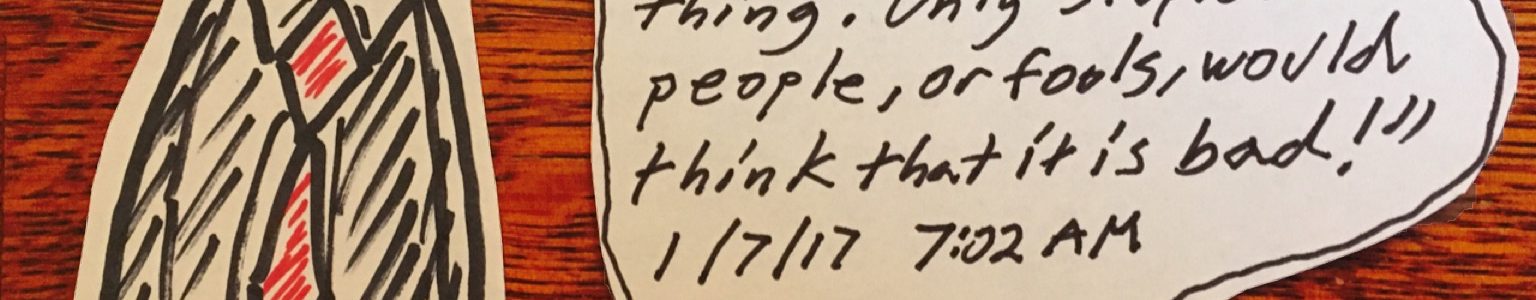 thing. Only
people, or fools, would
think that it is bad!"
1/7/17 7:02 AM